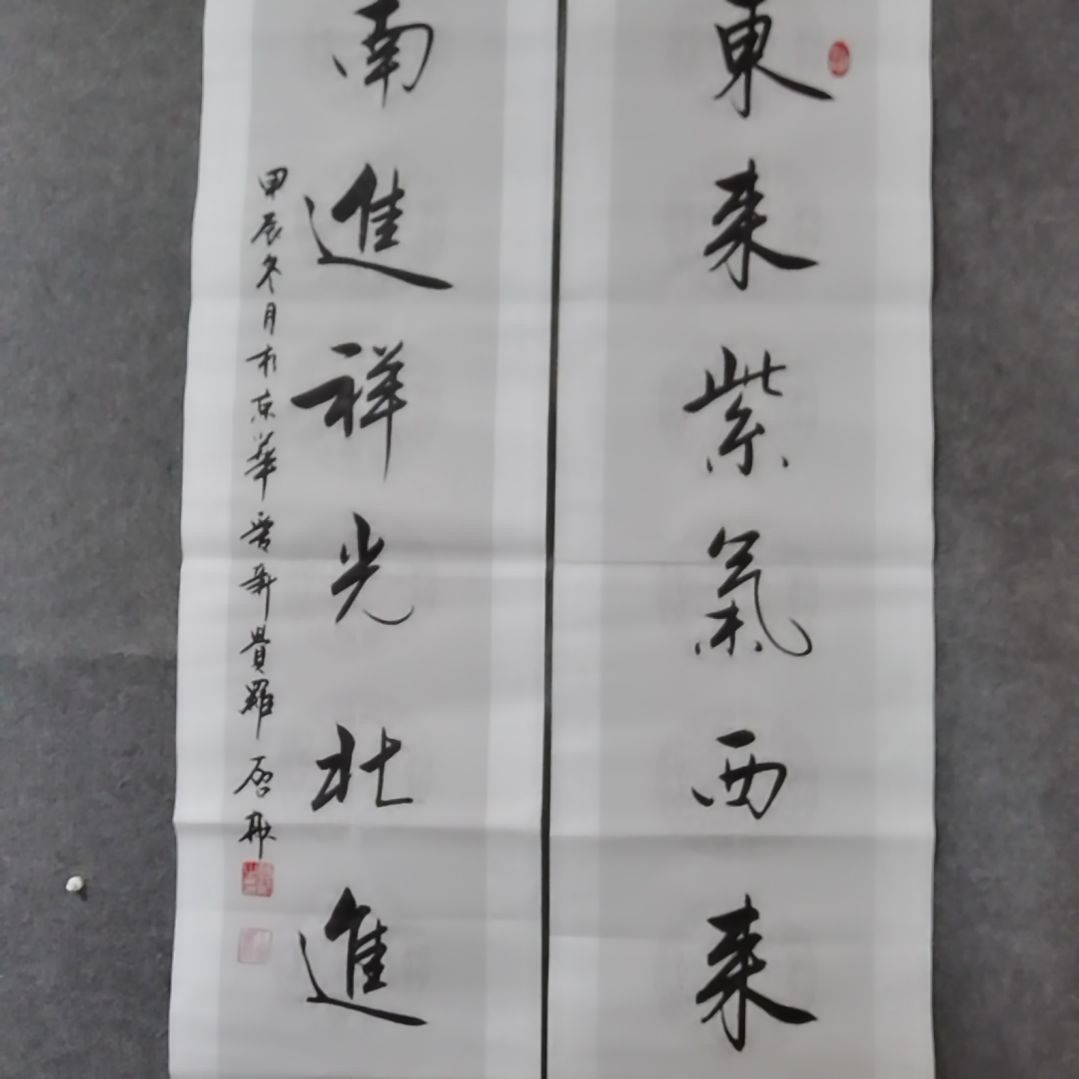 東来紫氣西来
南進祥光北進
甲辰冬月於京華愛新覺羅啓